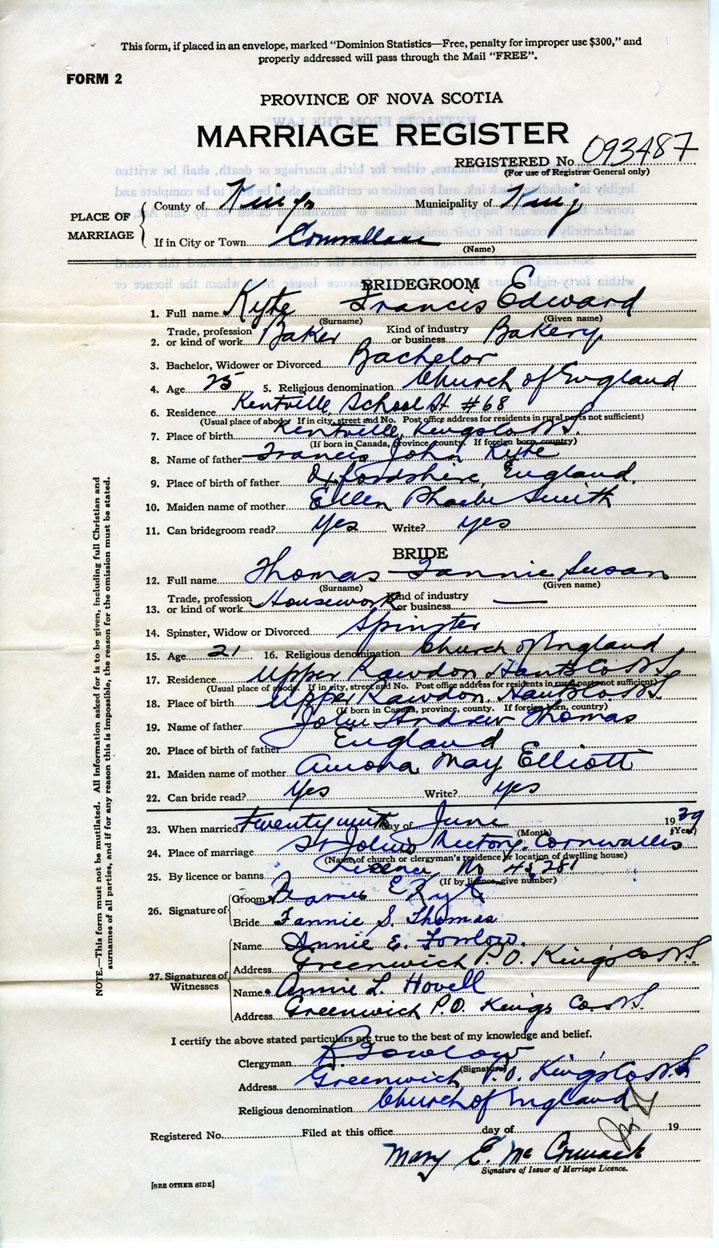 This form, if placed in an envelope, marked "Dominion Statistics—Free, penalty for improper use $300," and
properly addressed will pass through the Mail "FREE".
FORM 2
PROVINCE OF NOVA SCOTIA
MARRIAGE REGISTER
REGISTERED No. 093487
(For use of Registrar General only)
PLACE OF MARRIAGE
County of Kings Municipality of Kings
If in City or Town Cornwallis
(Name)
BRIDEGROOM
1. Full name Kyte Francis Edward
(Surname) (Given name)
2. Trade, profession or kind of work Baker Kind of industry or business Bakery
3. Bachelor, Widower or Divorced Bachelor
4. Age 25 5. Religious denomination Church of England
6. Residence Kentville School St #68
(Usual place of abode. If in city, street and No. Post office address for residents in rural parts not sufficient)
7. Place of birth Kentville, Kings Co N.S.
(If born in Canada, province, county. If foreign born, country)
8. Name of father Francis John Kyte
9. Place of birth of father Oxfordshire, England.
10. Maiden name of mother Ellen Phoebe Smith
11. Can bridegroom read? Yes Write? Yes
BRIDE
12. Full name Thomas Fannie Susan
(Surname) (Given name)
13. Trade, profession or kind of work Housework Kind of industry or business —
14. Spinster, Widow or Divorced Spinster
15. Age 21 16. Religious denomination Church of England
17. Residence Upper Rawdon Hants Co N.S.
(Usual place of abode. If in city, street and No. Post office address for residents in rural parts not sufficient)
18. Place of birth Upper Rawdon, Hants Co N.S.
(If born in Canada, province, county. If foreign born, country)
19. Name of father John Andrew Thomas
20. Place of birth of father England
21. Maiden name of mother Aurora May Elliott
22. Can bride read? Yes Write? yes
23. When married Twenty ninth day of June 1939
(Month) (Year)
24. Place of marriage St John's Rectory Cornwallis
(Name of church or clergyman's residence or location of dwelling house)
25. By licence or banns Licence No 45,281
(If by licence, give number)
26. Signature of
Groom Francis E Kyte
Bride Fannie S. Thomas
27. Signatures of Witnesses
Name Annie E. Fowlow.
Address Greenwich P.O. King's Co N.S.
Name Annie L. Hovell
Address Greenwich P.O. Kings Co. N.S.
I certify the above stated particulars are true to the best of my knowledge and belief.
Clergyman R. Fowlow
(Signature)
Address Greenwich, P.O. King's Co N.S.
Religious denomination Church of England
Registered No. Filed at this office day of 19
Mary E. McCormack
Signature of Issuer of Marriage Licence.
[SEE OTHER SIDE]
NOTE.—This form must not be mutilated. All information asked for is to be given, including full Christian and
surnames of all parties, and if for any reason this is impossible, the reason for the omission must be stated.